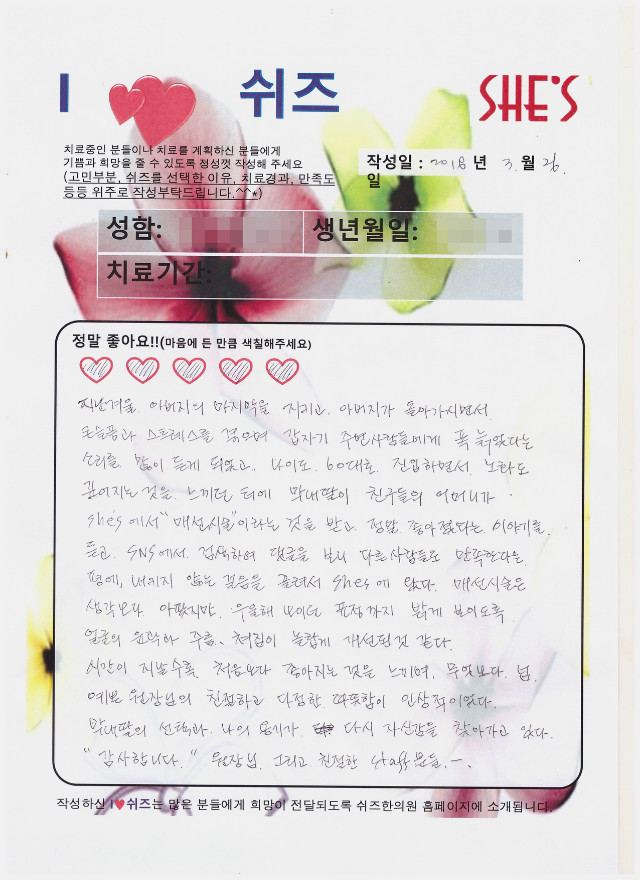 I ♥ 쉬즈
SHE'S
치료중인 분들이나 치료를 계획하신 분들에게
기쁨과 희망을 줄 수 있도록 정성껏 작성해 주세요
(고민부분, 쉬즈를 선택한 이유, 치료경과, 만족도
등등 위주로 작성부탁드립니다.^^*)
작성일 : 2018 년 3. 월 26.
일
성함: 생년월일:
치료기간:
정말 좋아요!!(마음에 든 만큼 색칠해주세요)
지난겨울. 아버지의 마지막을 지키고. 아버지가 돌아가시면서.
큰슬픔과 스트레스를 겪으며 갑자기 주변사람들에게 폭 늙었다는
소리를 많이 듣게 되었고.. 나이도. 60대로. 진입하면서. 노화도
깊어지는 것을. 느끼던 터에 막내딸이 친구들의 어머니가
she's에서 "매선시술"이라는 것을 받고. 정말 좋아졌다는. 이야기를.
듣고. SNS에서. 검색하여 댓글을 보니 다른사람들도 만족한다는
평에, 내키지 않는 걸음을 끌려서 she's에 왔다. 매선시술은
생각보다. 아팠지만. 우울해 보이던 표정까지 밝게 보이도록
얼굴의 윤곽과 주름, 처짐이 놀랍게 개선된것 같다.
시간이 지날수록. 처음보다 좋아지는 것을 느끼며, 무엇보다. 넘.
예쁜 원장님의 친절하고 다정한 따뜻함이 인상적이었다.
막내딸의 선택과. 나의 용기가 다시 자신감을 찾아가고 있다.
"감사합니다." 원장님. 그리고. 친절한 staff분들.ㅡ.
작성하신 I♥쉬즈는 많은 분들에게 희망이 전달되도록 쉬즈한의원 홈페이지에 소개됩니다.